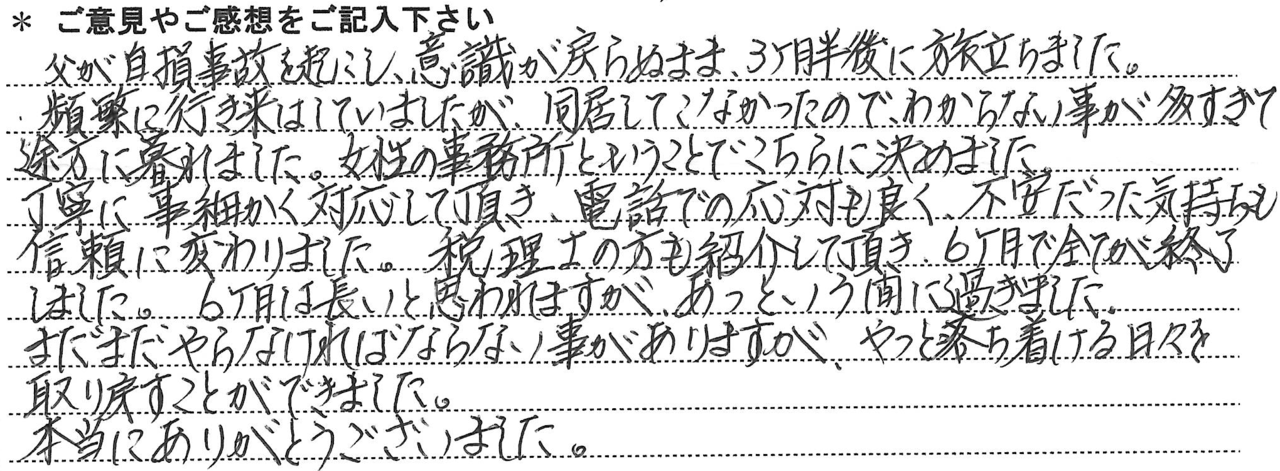 * ご意見やご感想をご記入下さい
父が自損事故を起こし、意識が戻らぬまま、3ケ月半後に旅立ちました。
頻繁に行き来はしていましたが、同居してこなかったので、わからない事が多すぎて
途方に暮れました。女性の事務所ということでこちらに決めました。
丁寧に事細かく対応して頂き、電話での応対も良く、不安だった気持ちも
信頼に変わりました。税理士の方も紹介して頂き、6ケ月で全てが終了
しました。6ケ月は長いと思われますが、あっという間に過ぎました。
まだまだやらなければならない事がありますが、やっと落ち着ける日々を
取り戻すことができました。
本当にありがとうございました。